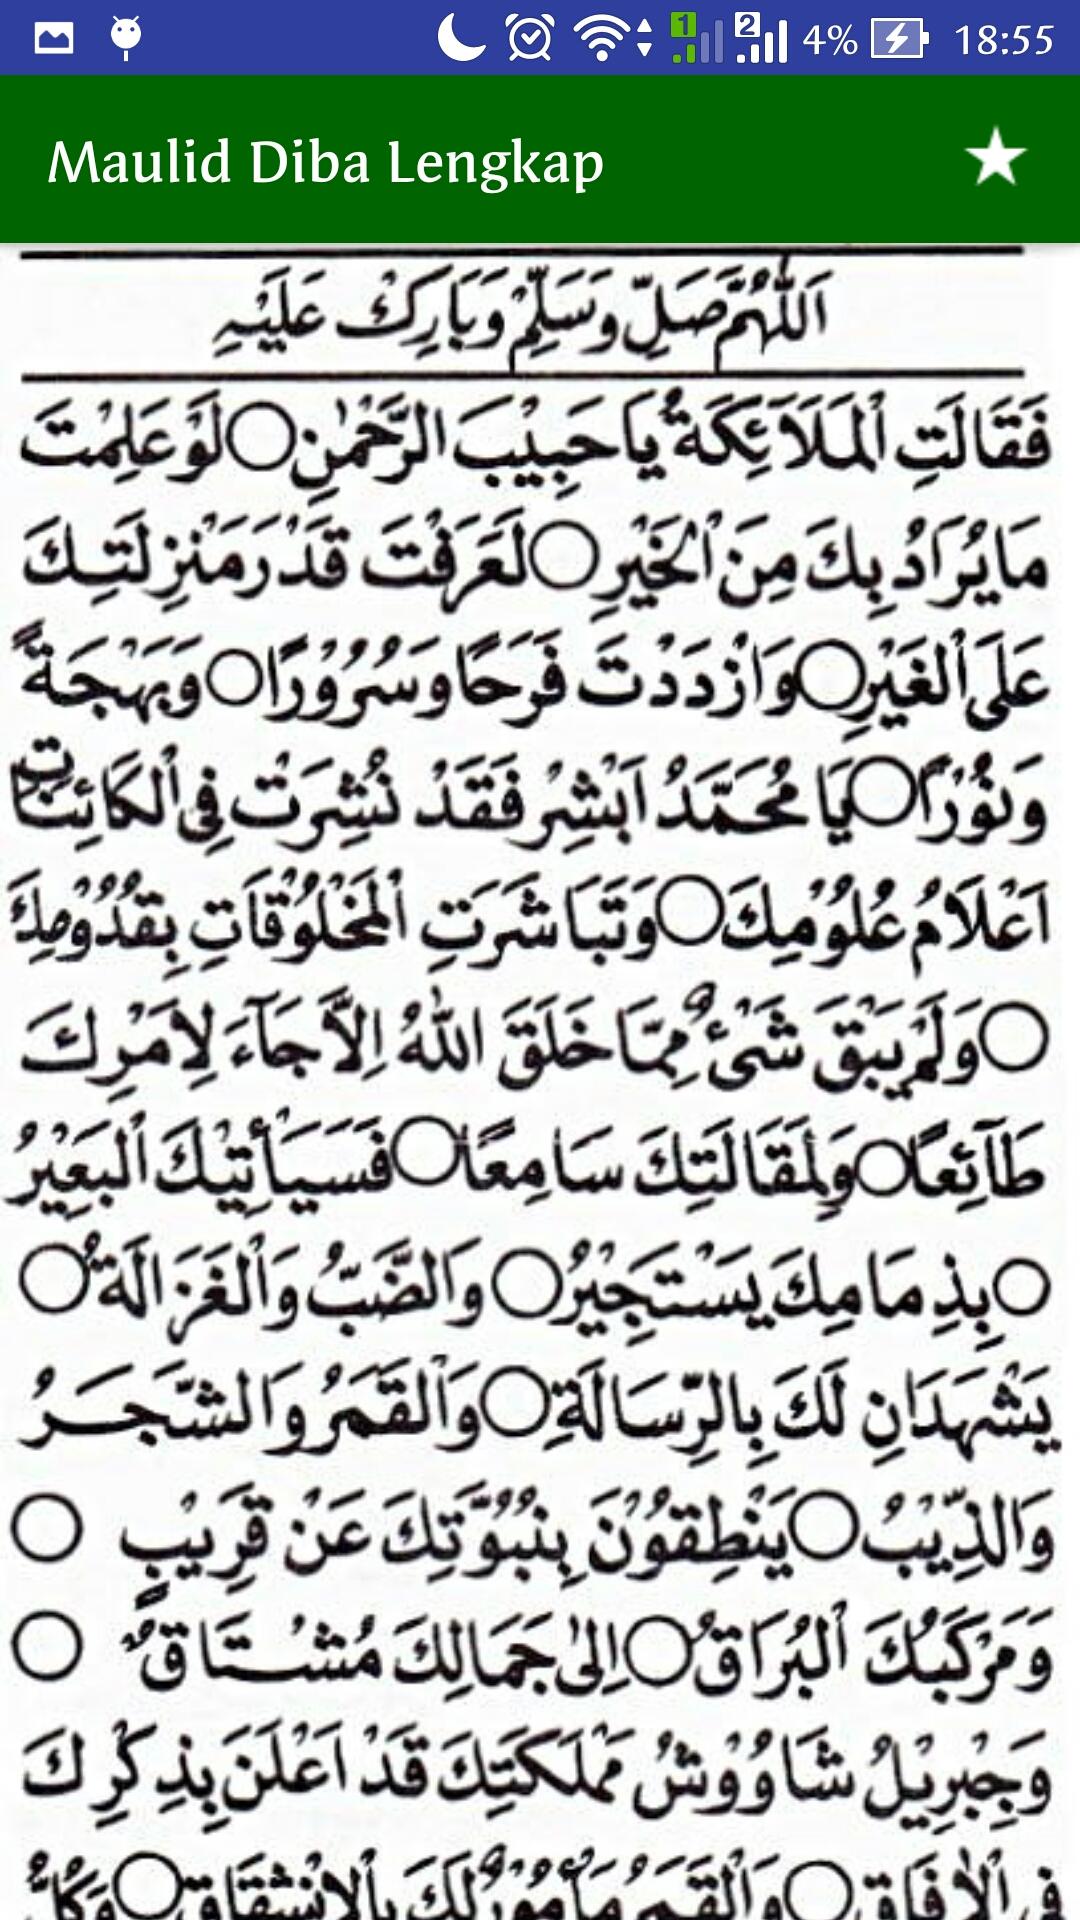 4% 18:55
Maulid Diba Lengkap
اَللّٰهُمَّ صَلِّ وَسَلِّمْ وَبَارِكْ عَلَيْهِ
فَقَالَتِ اْلمَلَآئِكَةُ يَا حَبِيْبَ الرَّحْمٰنِ ○ لَوْ عَلِمْتَ
مَا يُرَادُ بِكَ مِنَ اْلخَيْرِ ○ لَعَرَفْتَ قَدْرَ مَنْزِلَتِكَ
عَلَى اْلغَيْرِ ○ وَازْدَدْتَ فَرَحًا وَسُرُوْرًا ○ وَبَهْجَةً
وَنُوْرًا ○ يَا مُحَمَّدُ اَبْشِرْ فَقَدْ نُشِرَتْ فِى اْلكَائِنَاتِ
اَعْلَامُ عُلُوْمِكَ ○ وَتَبَاشَرَتِ اْلمَخْلُوْقَاتِ بِقُدُوْمِكَ
○ وَلَمْ يَبْقَ شَىْءٌ مِمَّا خَلَقَ اللّٰهُ اِلَّا جَآءَ لِاَمْرِكَ
طَآئِعًا ○ وَلِمَقَالَتِكَ سَامِعًا ○ فَسَيَأْتِيْكَ اْلبَعِيْرُ
○ بِذِمَامِكَ يَسْتَجِيْرُ ○ وَالضَّبُّ وَاْلغَزَالَةُ ○
يَشْهَدَانِ لَكَ بِالرِّسَالَةِ ○ وَاْلقَمَرُ وَالشَّجَرُ
وَالذِّيْبُ ○ يَنْطِقُوْنَ بِنُبُوَّتِكَ عَنْ قَرِيْبٍ ○
وَمَرْكَبُكَ اْلبُرَاقُ ○ اِلٰى جَمَالِكَ مُشْتَاقٌ ○
وَجِبْرِيْلُ شَاوُوْشُ مَمْلَكَتِكَ قَدْ اَعْلَنَ بِذِكْرِكَ
فِى اْلاٰفَاقِ ○ وَاْلقَمَرُ مَأْمُوْرٌ لَكَ بِاْلاِنْشِقَاقِ ○ وَكُلُّ